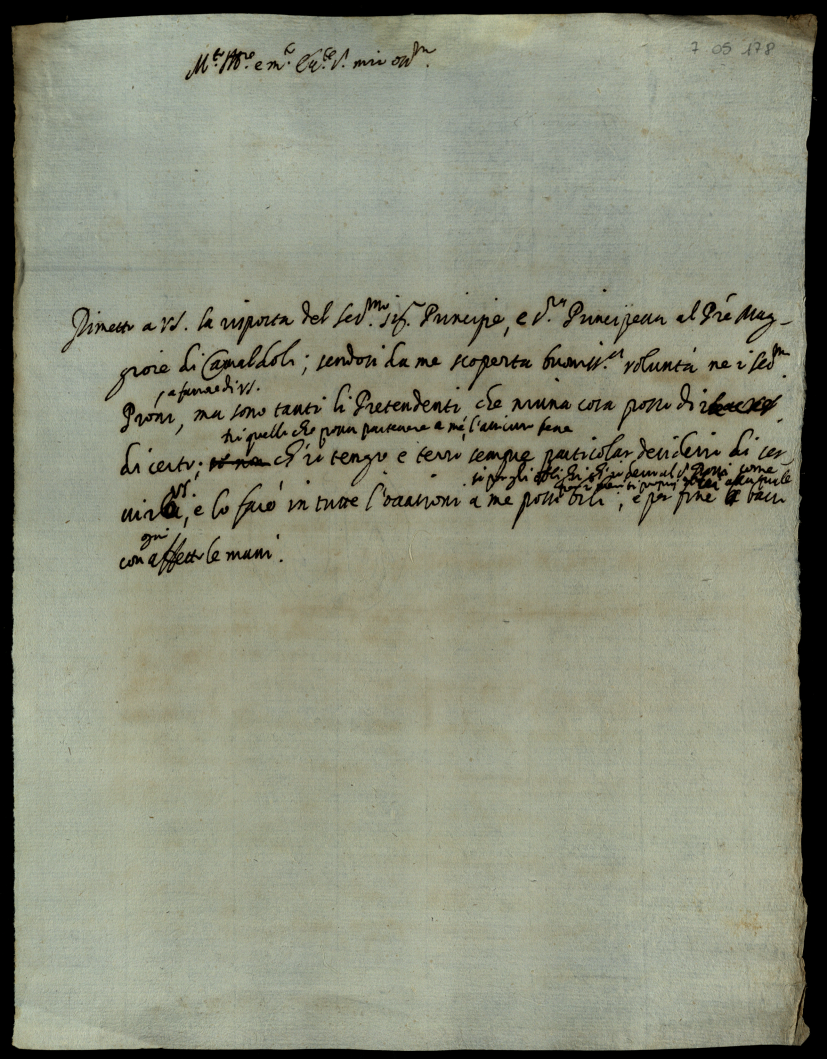 7 05 178
M.to Ill.re e m.to Ecc.te S.r mio oss.mo
Rimetto a VS. la risposta del Ser.mo Sig.r Principe, e S.ra Principessa al Pre Mag-
giore di Camaldoli; sendosi da me scoperta buoniss.a volontà ne i Ser.mi
, a favore di VS.
Proni, ma sono tanti li Pretendenti che niuna cosa posso dir
di quello che possa pertenere a me, l'assicuro bene
di certo; ch'io tengo e terrò sempre particolar desiderio di ser-
si per gli oblighi
VS.
virla, e lo farò in tutte l'occasioni a me possibili, e per fine le bacio
ogni
con affetto le mani.